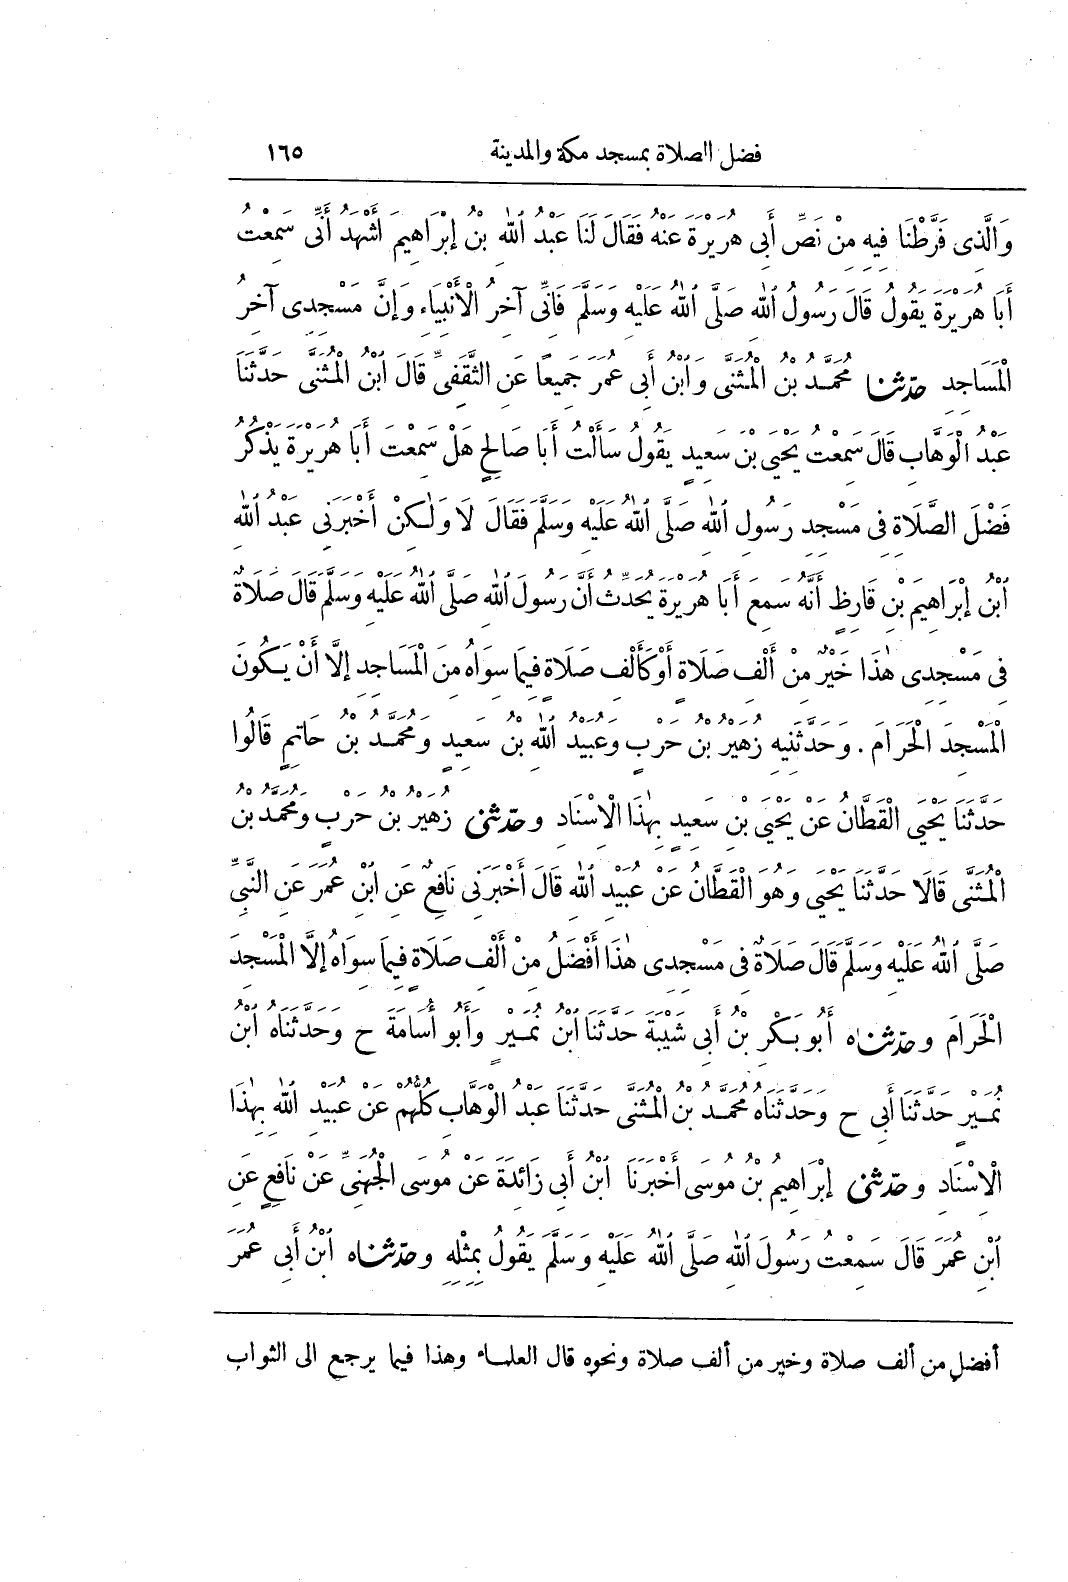 فضل الصلاة بمسجد مكة والمدينة ١٦٥
وَالَّذِى فَرَّطْنَا فِيهِ مِنْ نَصِّ أَبِى هُرَيْرَةَ عَنْهُ فَقَالَ لَنَا عَبْدُ اللهِ بْنُ إِبْرَاهِيمَ أَشْهَدُ أَنِّى سَمِعْتُ
أَبَا هُرَيْرَةَ يَقُولُ قَالَ رَسُولُ اللهِ صَلَّى اللهُ عَلَيْهِ وَسَلَّمَ فَانِّى آخِرُ الْأَنْبِيَاءِ وَإِنَّ مَسْجِدِى آخِرُ
الْمَسَاجِدِ حدّثنا مُحَمَّدُ بْنُ الْمُثَنَّى وَابْنُ أَبِى عُمَرَ جَمِيعًا عَنِ الثَّقَفِىِّ قَالَ ابْنُ الْمُثَنَّى حَدَّثَنَا
عَبْدُ الْوَهَّابِ قَالَ سَمِعْتُ يَحْيَى بْنَ سَعِيدٍ يَقُولُ سَأَلْتُ أَبَا صَالِحٍ هَلْ سَمِعْتَ أَبَا هُرَيْرَةَ يَذْكُرُ
فَضْلَ الصَّلَاةِ فِى مَسْجِدِ رَسُولِ اللهِ صَلَّى اللهُ عَلَيْهِ وَسَلَّمَ فَقَالَ لَا وَلٰكِنْ أَخْبَرَنِى عَبْدُ اللهِ
ابْنُ إِبْرَاهِيمَ بْنِ قَارِظٍ أَنَّهُ سَمِعَ أَبَا هُرَيْرَةَ يُحَدِّثُ أَنَّ رَسُولَ اللهِ صَلَّى اللهُ عَلَيْهِ وَسَلَّمَ قَالَ صَلَاةٌ
فِى مَسْجِدِى هٰذَا خَيْرٌ مِنْ أَلْفِ صَلَاةٍ أَوْ كَأَلْفِ صَلَاةٍ فِيمَا سِوَاهُ مِنَ الْمَسَاجِدِ إِلَّا أَنْ يَكُونَ
الْمَسْجِدَ الْحَرَامَ . وَحَدَّثَنِيهِ زُهَيْرُ بْنُ حَرْبٍ وَعُبَيْدُ اللهِ بْنُ سَعِيدٍ وَمُحَمَّدُ بْنُ حَاتِمٍ قَالُوا
حَدَّثَنَا يَحْيَى الْقَطَّانُ عَنْ يَحْيَى بْنِ سَعِيدٍ بِهٰذَا الْاِسْنَادِ وحدّثنى زُهَيْرُ بْنُ حَرْبٍ وَمُحَمَّدُ بْنُ
الْمُثَنَّى قَالَا حَدَّثَنَا يَحْيَى وَهُوَ الْقَطَّانُ عَنْ عُبَيْدِ اللهِ قَالَ أَخْبَرَنِى نَافِعٌ عَنِ ابْنِ عُمَرَ عَنِ النَّبِىِّ
صَلَّى اللهُ عَلَيْهِ وَسَلَّمَ قَالَ صَلَاةٌ فِى مَسْجِدِى هٰذَا أَفْضَلُ مِنْ أَلْفِ صَلَاةٍ فِيمَا سِوَاهُ إِلَّا الْمَسْجِدَ
الْحَرَامَ وحدّثناه أَبُو بَكْرِ بْنُ أَبِى شَيْبَةَ حَدَّثَنَا ابْنُ نُمَيْرٍ وَأَبُو أُسَامَةَ ح وَحَدَّثَنَاهُ ابْنُ
نُمَيْرٍ حَدَّثَنَا أَبِى ح وَحَدَّثَنَاهُ مُحَمَّدُ بْنُ الْمُثَنَّى حَدَّثَنَا عَبْدُ الْوَهَّابِ كُلُّهُمْ عَنْ عُبَيْدِ اللهِ بِهٰذَا
الْاِسْنَادِ وحدّثنى إِبْرَاهِيمُ بْنُ مُوسَى أَخْبَرَنَا ابْنُ أَبِى زَائِدَةَ عَنْ مُوسَى الْجُهَنِىِّ عَنْ نَافِعٍ عَنِ
ابْنِ عُمَرَ قَالَ سَمِعْتُ رَسُولَ اللهِ صَلَّى اللهُ عَلَيْهِ وَسَلَّمَ يَقُولُ بِمِثْلِهِ وحدّثناه ابْنُ أَبِى عُمَرَ
أفضل من ألف صلاة وخير من ألف صلاة ونحوه قال العلماء وهذا فيما يرجع الى الثواب